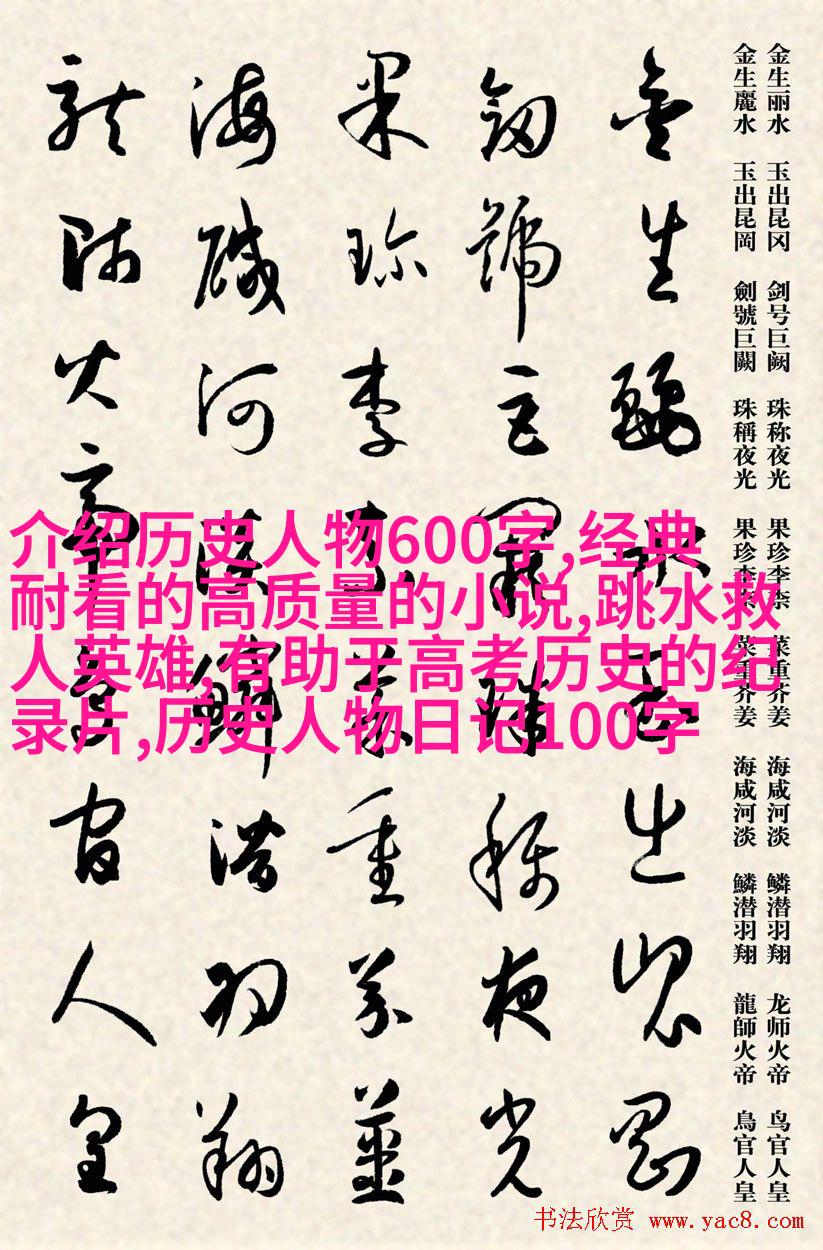 金生丽水 玉出昆冈 剑号巨阙 珠称夜光 果珍李柰 菜重芥姜 海咸河淡 鳞潜羽翔 龙师火帝 鸟官人皇
金生麗水 玉出昆岡 劍號巨闕 珠稱夜光 果珍李柰 菜重芥姜 海咸河淡 鱗潜羽翔 龍師火帝 鳥官人皇
金生麗水玉出崑岡
劔號巨闕珠稱夜光
果珍李柰菜重芥薑
海醎河淡鱗潛羽翔
龍師火帝鳥官人皇
介绍历史人物600字,经典
耐看的高质量的小说,跳水救
人英雄,有助于高考历史的纪
录片,历史人物日记100字
书法欣赏 www.yac8.com